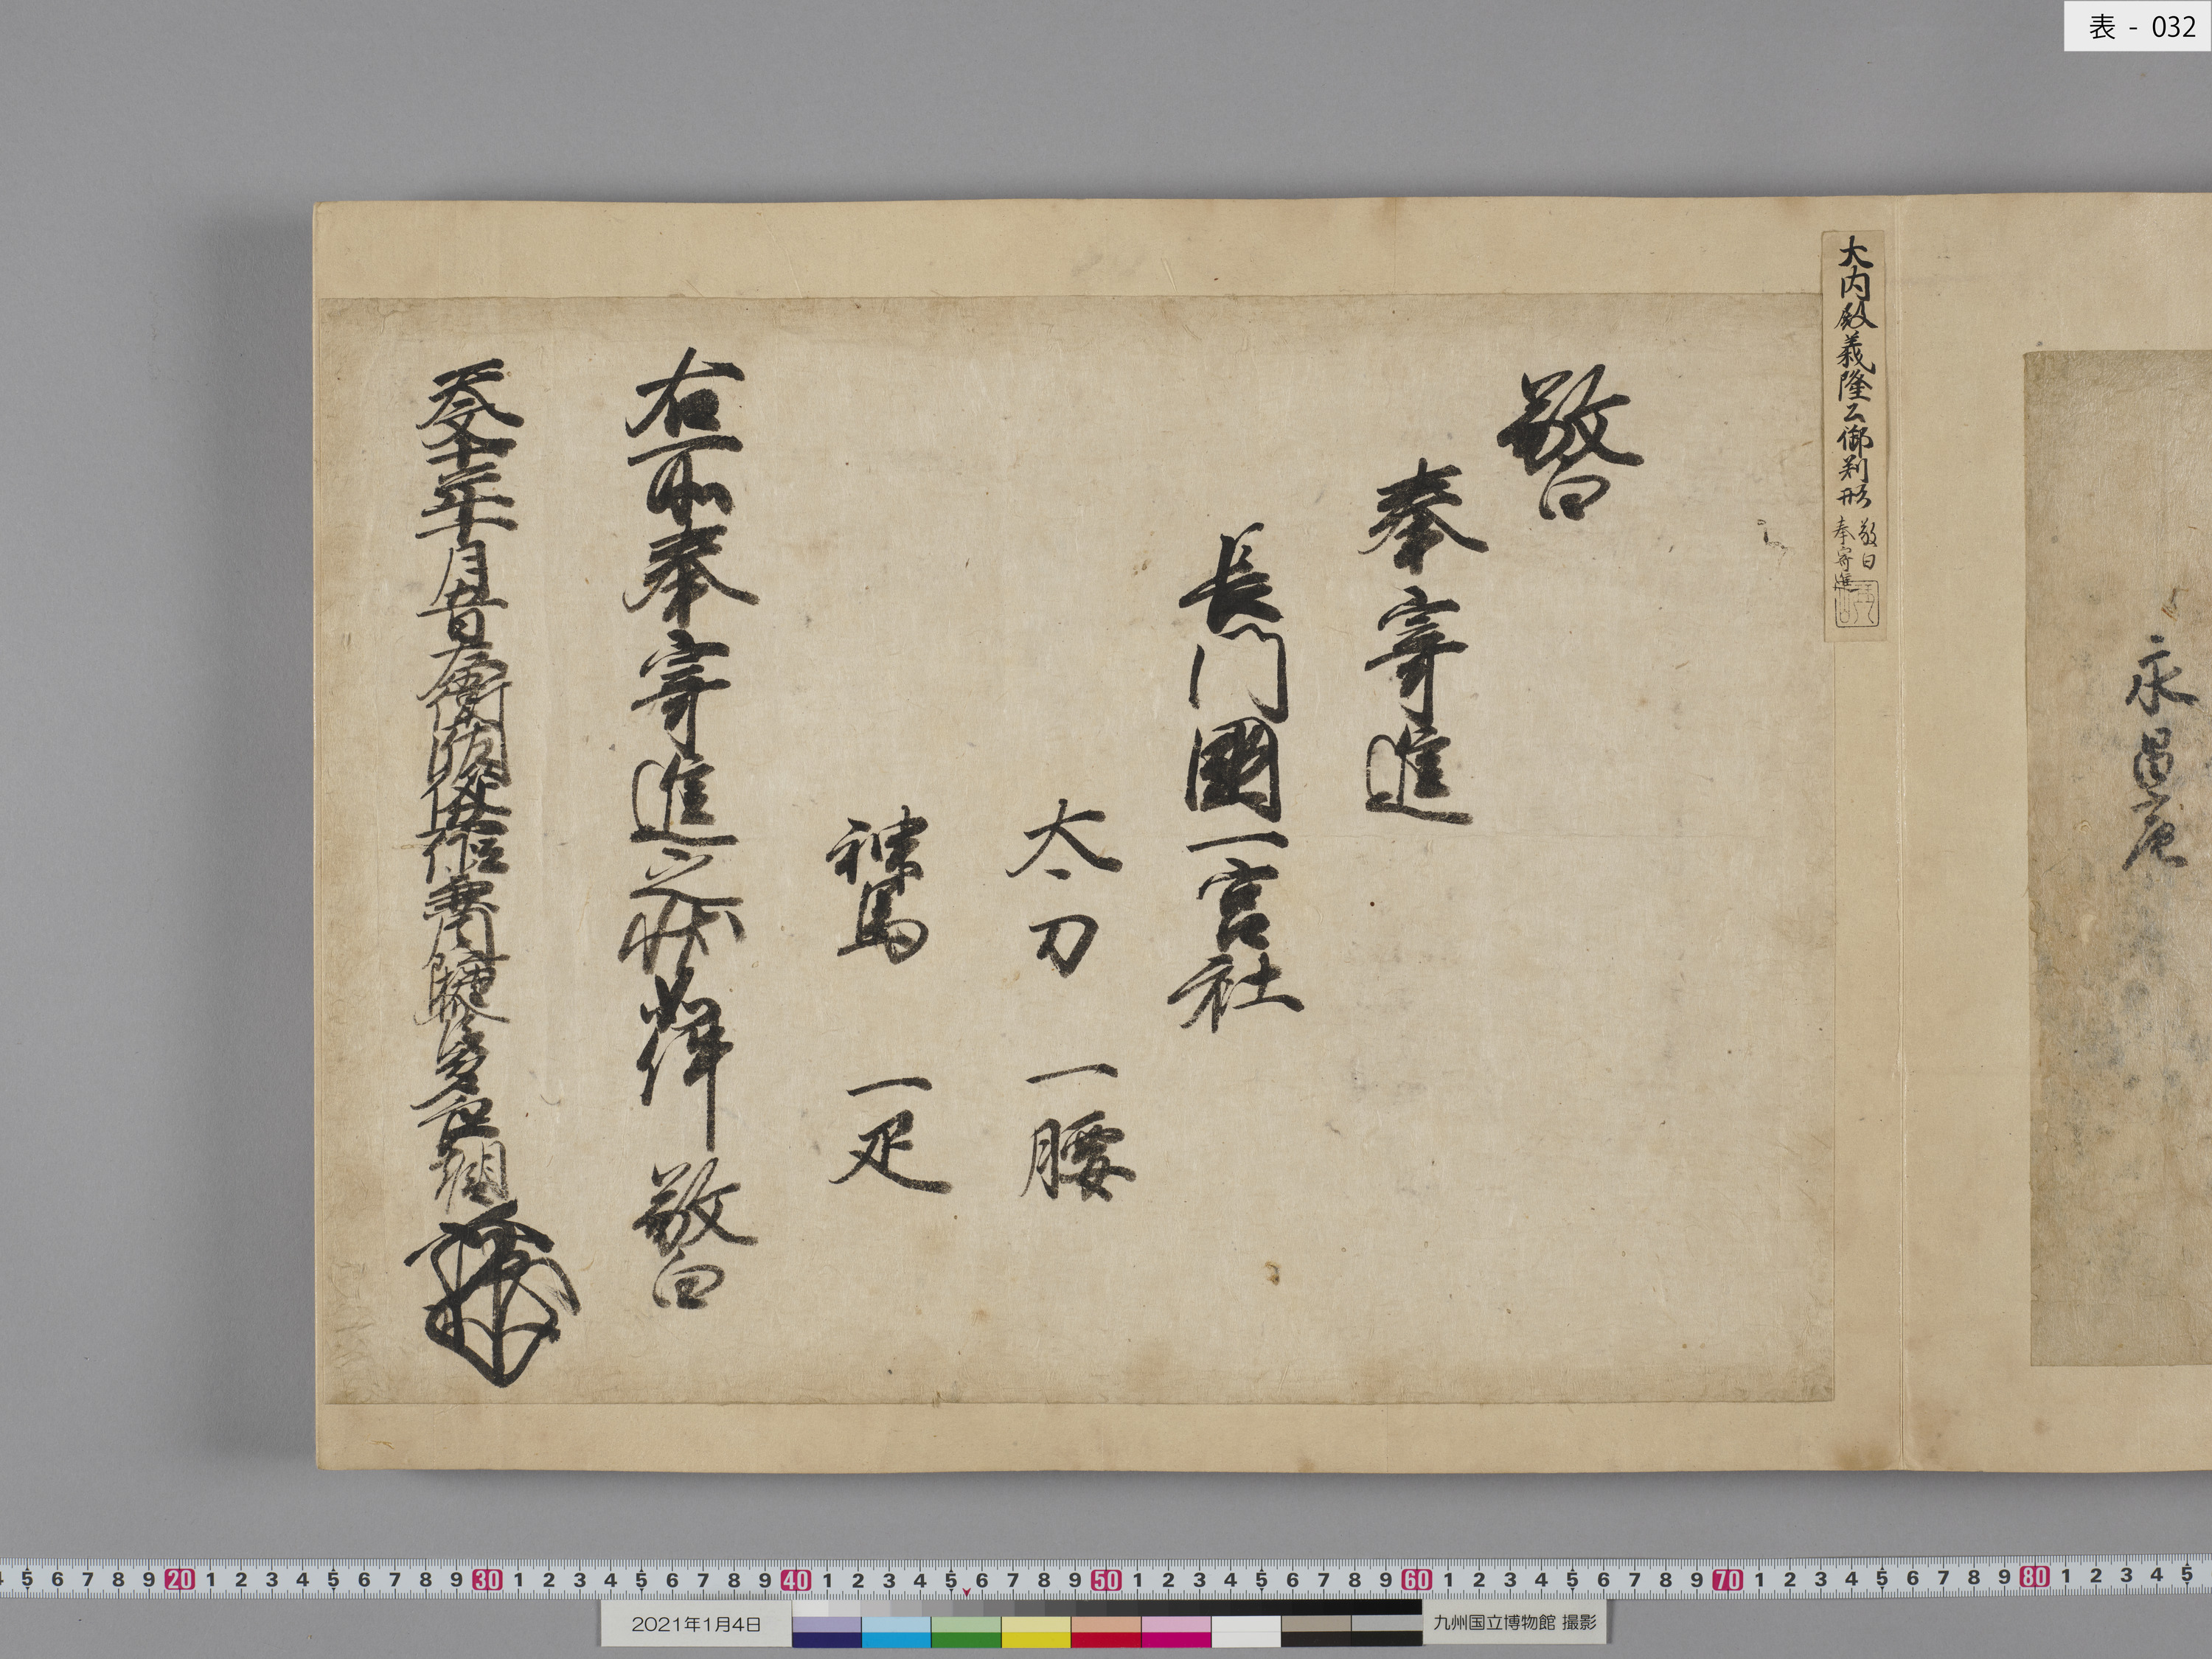 表 - 032
永昌庵
大内殿義隆公御判形
敬白
奉寄進
敬白
奉寄進
長門國一宮社
太刀 一腰
神馬 一疋
右所奉寄進之状如件 敬白
多々良朝臣
20 1 2 3 4 5 6 7 8 9 30 1 2 3 4 5 6 7 8 9 40 1 2 3 4 5 6 7 8 9 50 1 2 3 4 5 6 7 8 9 60 1 2 3 4 5 6 7 8 9 70 1 2 3 4 5 6 7 8 9 80 1 2 3 4 5
2021年1月4日
九州国立博物館 撮影